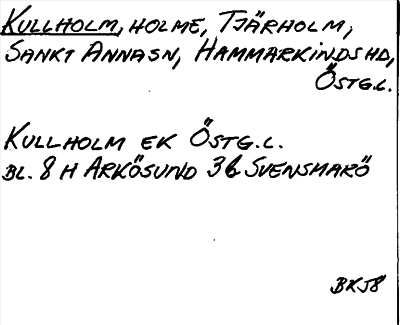 KULLHOLM, HOLME, TJÄRHOLM,
SANKT ANNASN, HAMMARKINDSHD,
ÖSTG.L.
KULLHOLM EK ÖSTG.L.
BL. 8 H ARKÖSUND 3b SVENSMARÖ
BKJ8